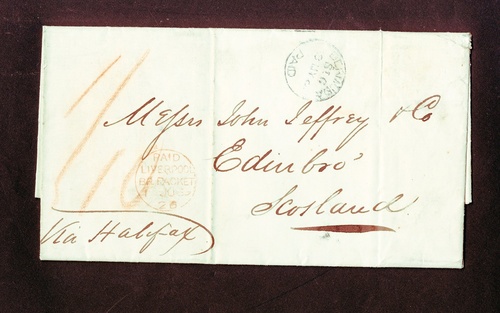 PAID
Messrs John Jeffrey & Co
Edinbro'
Scotland
PAID
LIVERPOOL
BR. PACKET
20
Via Halifax